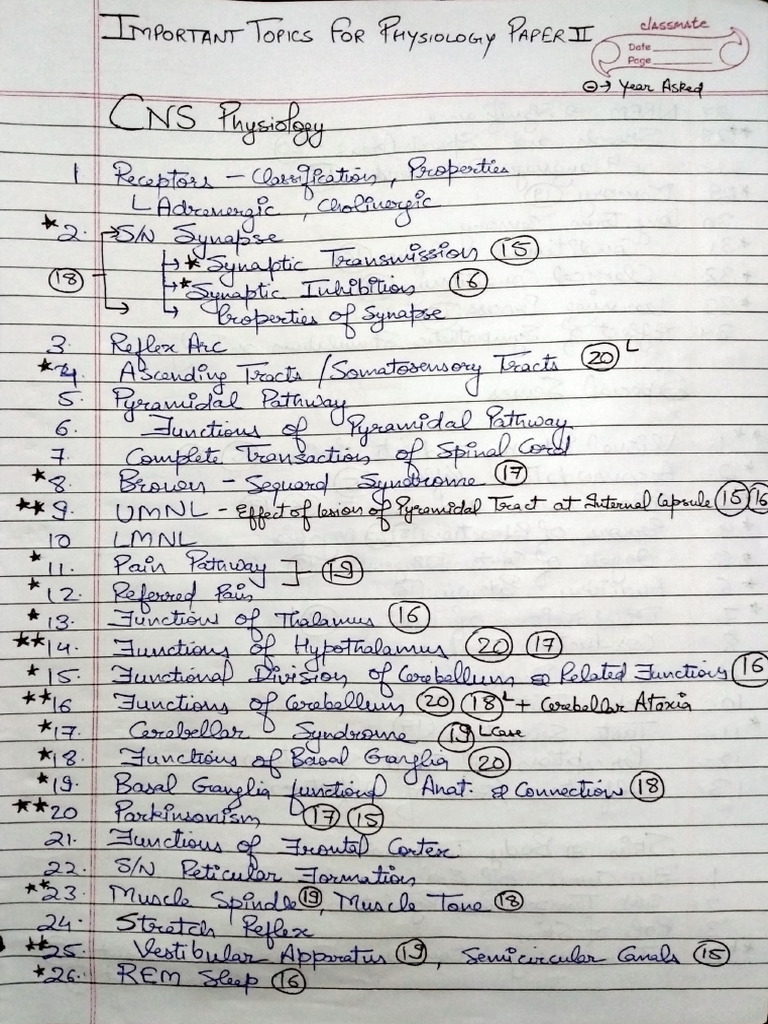 IMPORTANT TOPICS FOR PHYSIOLOGY PAPER II
classmate
Date
Page
⊖→ Year Asked
CNS Physiology
1 Receptors - Classification, Properties
└ Adrenergic, Cholinergic
★2. S/N Synapse
→ ★ Synaptic Transmission (15)
(18) → ★ Synaptic Inhibition (16)
→ Properties of Synapse
3. Reflex Arc
★4. Ascending Tracts / Somatosensory Tracts (20) L
5. Pyramidal Pathway
6. Functions of Pyramidal Pathway
7. Complete Transaction of Spinal Cord
★8. Brown - Sequard Syndrome (17)
★★9. UMNL - Effect of lesion of Pyramidal Tract at Internal Capsule (15) (16)
10 LMNL
★11. Pain Pathway ] - (19)
★12. Referred Pain
★13. Functions of Thalamus (16)
★★14. Functions of Hypothalamus (20) (17)
★15. Functional Division of Cerebellum & Related Functions (16)
★★16 Functions of Cerebellum (20) (18) L + Cerebellar Ataxia
★17. Cerebellar Syndrome (19) L case
★18. Functions of Basal Ganglia (20)
★19. Basal Ganglia functional Anat. & Connection (18)
★★20 Parkinsonism (17) (15)
21. Functions of Frontal Cortex
22. S/N Reticular Formation
★★23. Muscle Spindle (19), Muscle Tone (18)
24. Stretch Reflex
★★25. Vestibular Apparatus (19), Semicircular Canals (15)
★26. REM Sleep (16)